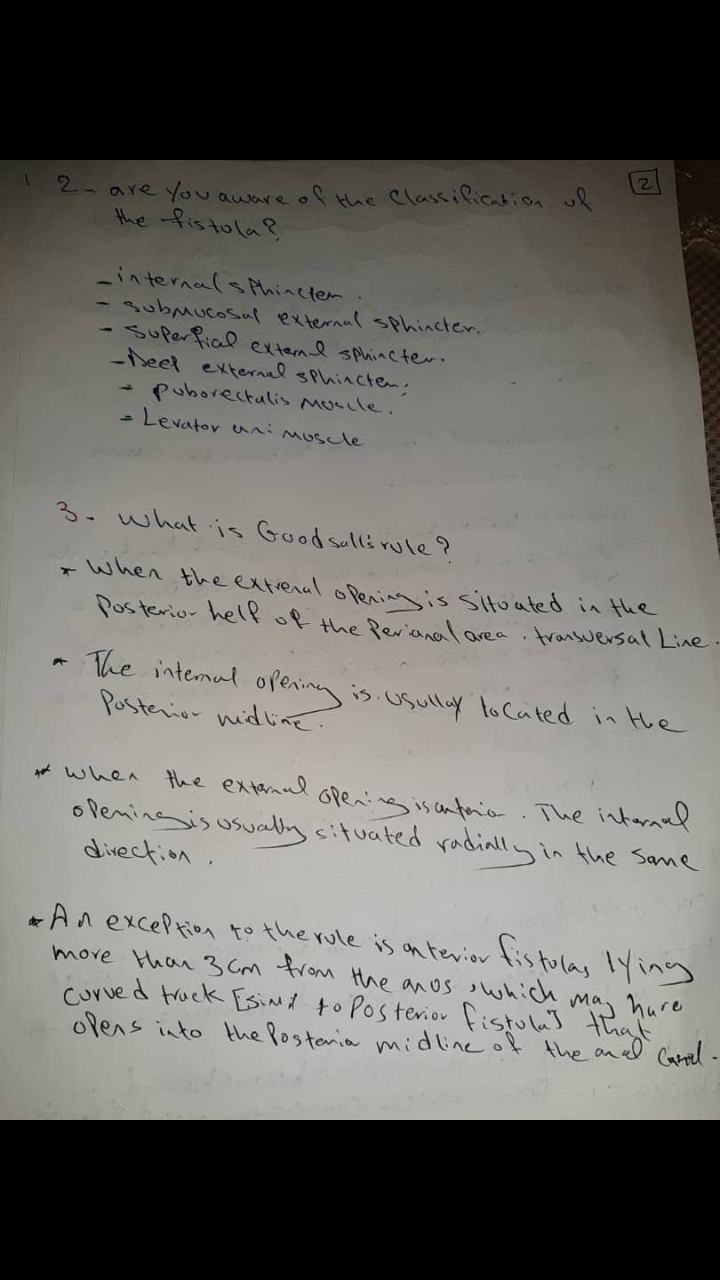 2
2- are you aware of the Classification of
the fistola?
- internal sphincter.
- submucosal external sphincter.
- superfial external sphincter.
- Deep external sphincter.
- puborectalis muscle.
- Levator ani muscle
3- what is Goodsall's rule?
* When the extrenal opening is situated in the
Posterior helf of the Perianal area. transversal Line.
* The internal opening is usullay located in the
Posterior midline.
* when the external opening is anterior. The internal
opening is usually situated radially in the same
direction.
* An exception to the rule is anterior fistulas, lying
more than 3cm from the anus, which may have
curved track [ to Posterior fistula] that
opens into the Posterior midline of the anal Canal.